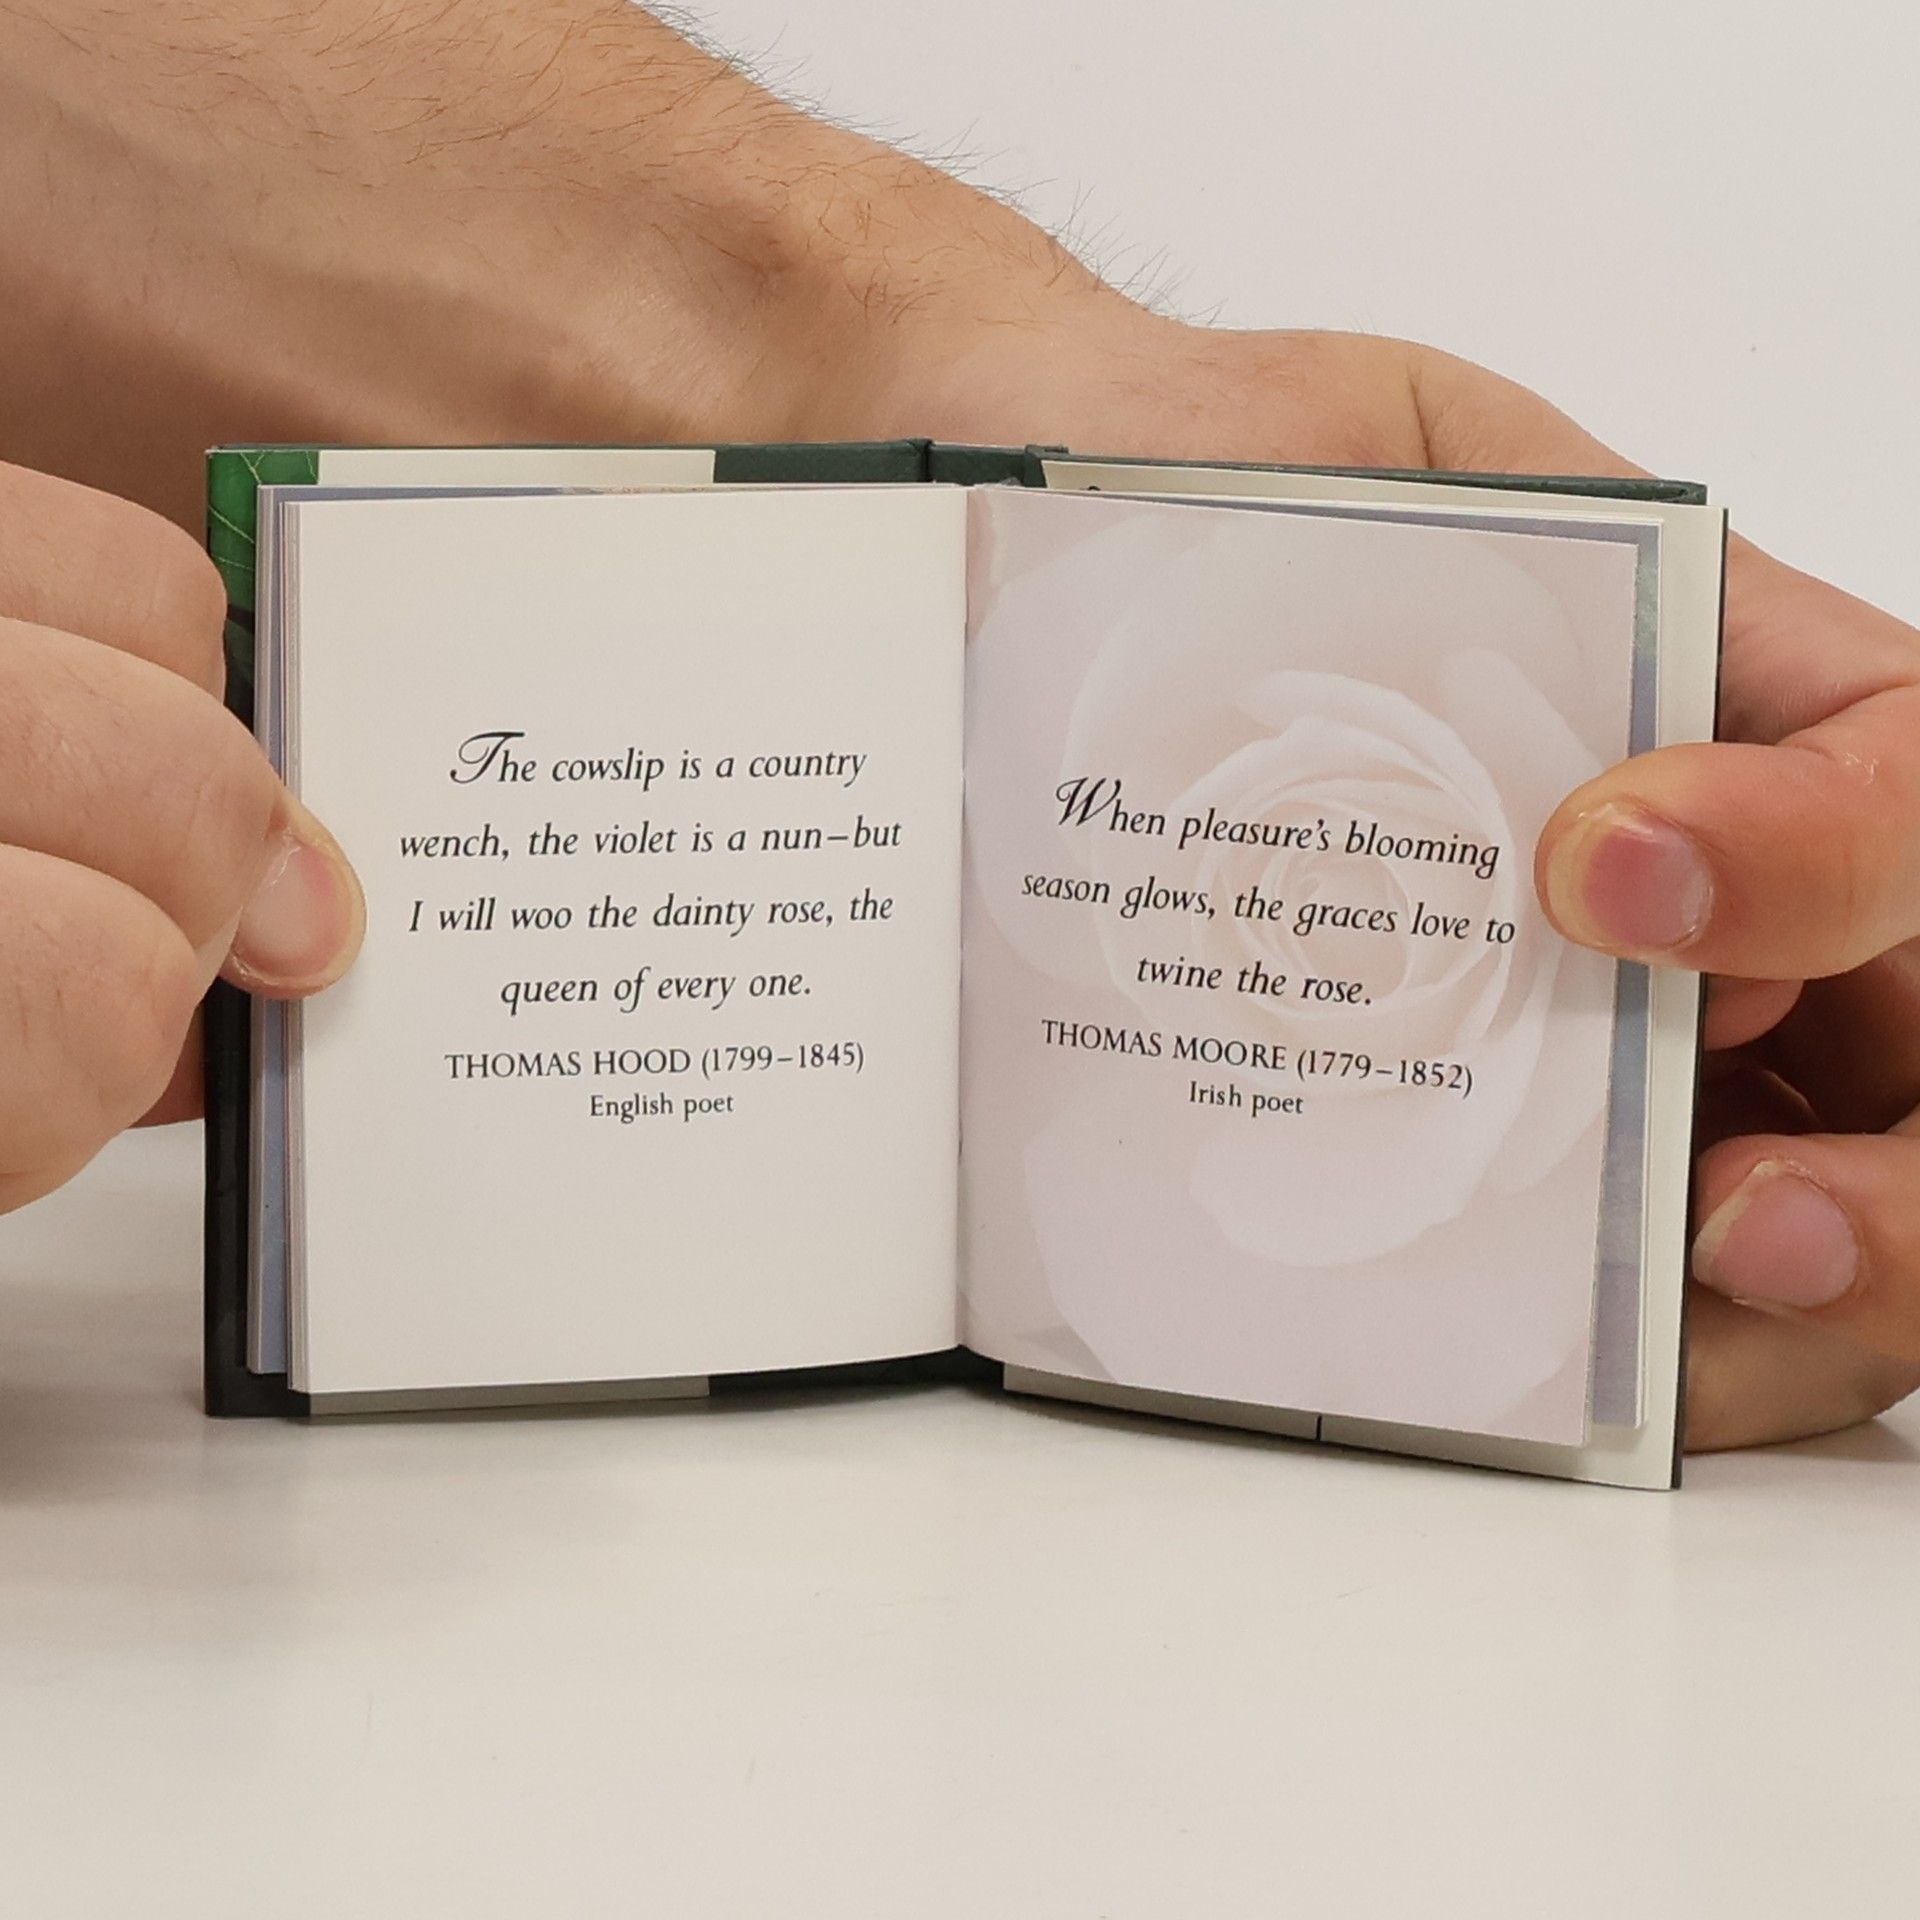 The cowslip is a country
wench, the violet is a nun–but
I will woo the dainty rose, the
queen of every one.
THOMAS HOOD (1799–1845)
English poet
When pleasure's blooming
season glows, the graces love to
twine the rose.
THOMAS MOORE (1779–1852)
Irish poet